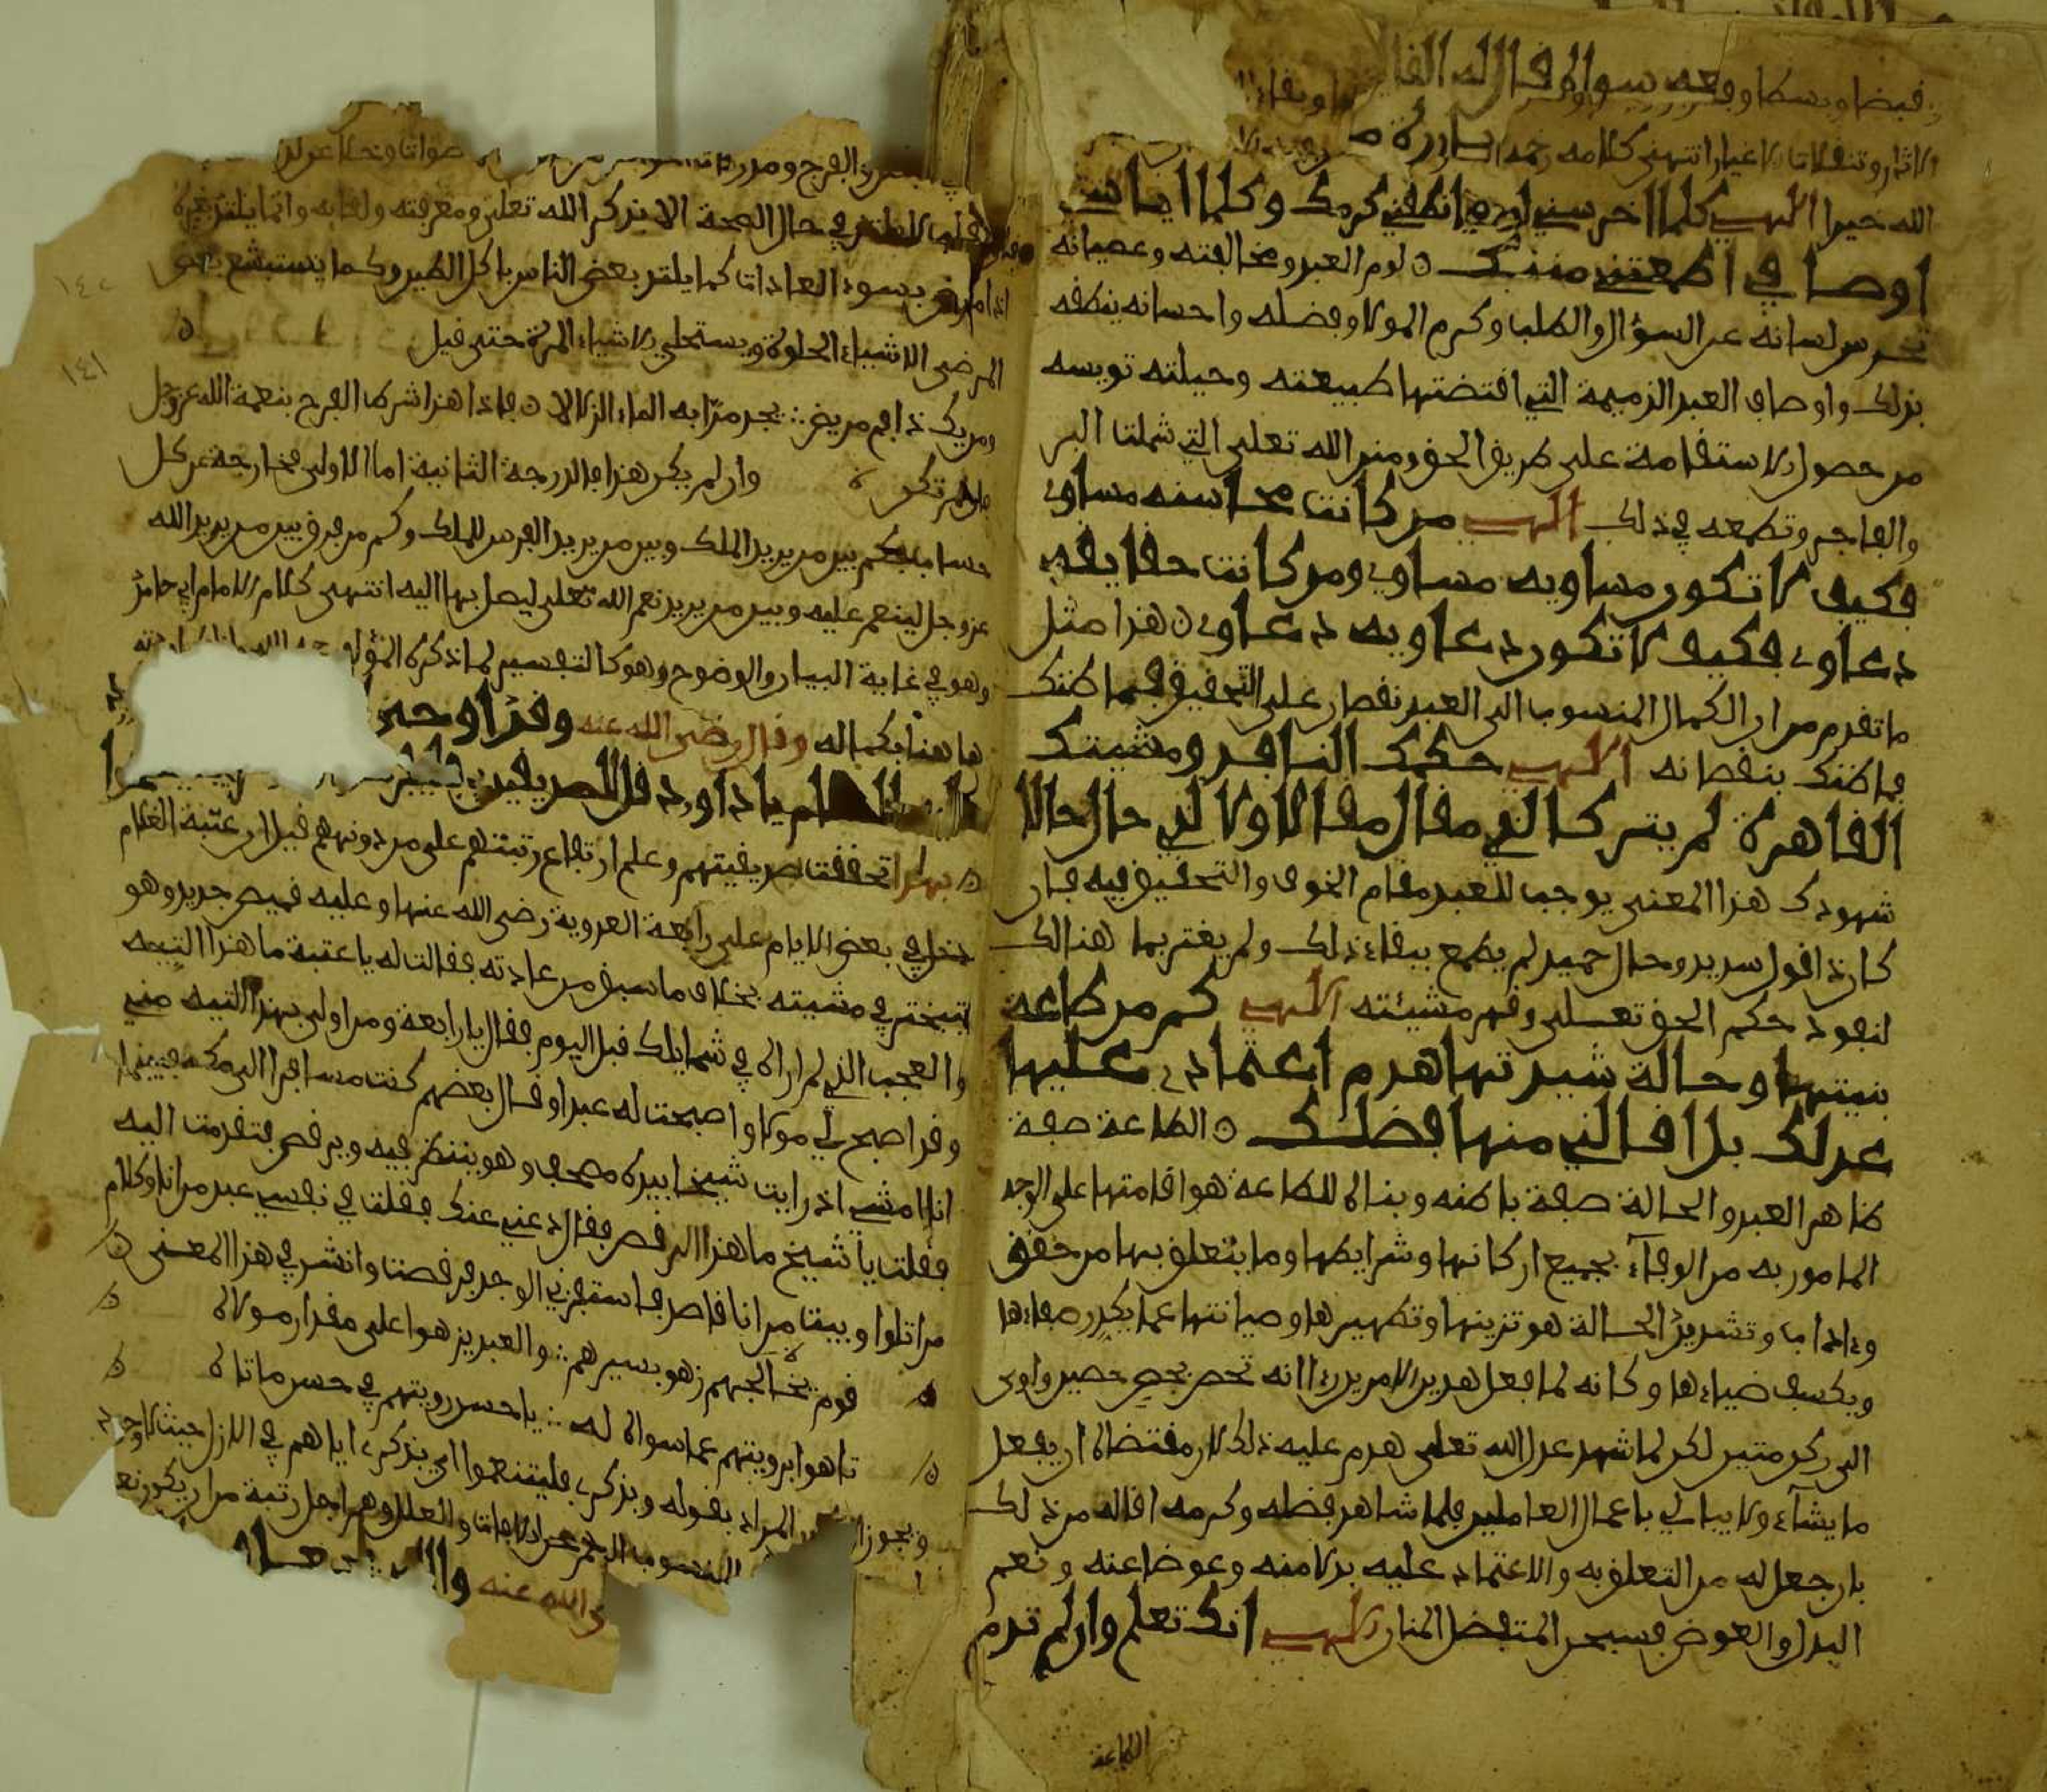 قبضا وبسطا وفقد سواك فاله
الاثار وتنقلات الاغيار انتهى كلامه رحمه
الله خيرا الهي كلما اخرسني لومي انطقني كرمك وكلما ايأستني
اوصافي اطمعتني مننك ٥ لوم العبد ومخالفته وعصيانه
تخرس لسانه عن السؤال والطلب وكرم المولا وفضله واحسانه ينطقه
بذلك واوصاف العبد الذميمة التي اقتضتها طبيعته وجبلته تويسه
من حصول الاستقامة على طريق الحق ومنن الله تعلى التي شملت البر
والفاجر وتطمعه في ذلك الهي من كانت محاسنه مساوي
فكيف لا تكون مساويه مساوي ومن كانت حقايقه
دعاوي فكيف لا تكون دعاويه دعاوي ٥ هذا مثل
ما تقدم من ان الكمال المنسوب الى العبد نقصان على التحقيق فما ظنك
فما ظنك بنقصانه الهي حكمك النافذ ومشيئتك
القاهرة لم يتركا لذي مقال مقالا ولا لذي حال حالا
شهودك هذا المعنى يوجب للعبد مقام الخوف والتحقيق فيه فان
كان ذا قول سديد وحال حميد لم يطمع ببقاء ذلك ولم يغتر بما هنالك
لنفوذ حكم الحق تعلى وقهر مشيئته الهي كم من طاعة
بنيتها وحالة شيدتها هدم اعتمادي عليها
عدلك بل اقالني منها فضلك ٥ الطاعة صفة
ظاهر العبد والحالة صفة باطنه وبناؤه للطاعة هو اقامتها على الوجه
المامور به من الوفاء بجميع اركانها وشرايطها وما يتعلق بها من حقوق
وءاداب وتشديد الحالة هو تزيينها وتطهيرها وصيانتها عما يكدر صفاءها
ويكسف ضياءها وكانه لما فعل هذين الامرين رءا انه تحصن بحصن حصين واوى
الى ركن متين لكن لما شهد عدل الله تعلى هدم عليه ذلك لان مقتضاه ان يفعل
ما يشاء ولا يبالي باعمال العاملين فلما شاهد فضله وكرمه اقاله من ذلك
بان جعل له من التعلق به والاعتماد عليه بدلا منه وعوضا عنه ونعم
البدل والعوض فسبحن المتفضل المنان الهي انك تعلم وان لم تدم
الطاعة
في حال الصحة الا بذكر الله تعلى ومعرفته ولقايه وانما يلتذ بغيره
اذا مرض بسوء العادات كما يلتذ بعض الناس باكل الطين وكما يستبشع بعض
المرضى الاشياء الحلوة ويستحلي الاشياء المرة حتى قيل
ومن يك ذا فم مريض ∴ يجد مرا به الماء الزلالا ٥ فاذا هذا شرط الفرح بنعمة الله عز وجل
وان لم يكن هذا فالدرجة الثانية اما الاولى فخارجة عن كل
حساب فكم بين من يريد الملك وبين من يريد الفرس للملك وكم من فرق بين من يريد الله
عز وجل لينعم عليه وبين من يريد نعم الله تعلى ليصل بها اليه انتهى كلام الامام ابي حامد
وهو في غاية البيان والوضوح وهو كالتفسير لما ذكره المؤلف
ها هنا بكماله وقال رضي الله عنه وقد اوحى
يا داوود قل للصديقين
تحققت صديقيتهم وعلم ارتفاع رتبتهم على من دونهم قيل ان عتبة الغلام
دخل في بعض الايام على رابعة العدوية رضي الله عنها وعليه قميص جديد وهو
يتبختر في مشيته بخلاف ما سبق من عادته فقالت له يا عتبة ما هذا التيه
والعجب الذي لم اراه في شمايلك قبل اليوم فقال يا رابعة ومن اولى بهذا التيه مني
وقد اصبح لي مولا واصبحت له عبدا وقال بعضهم كنت مسافرا الى مكة فبينما
انا امشي اذ رايت شيخا بيده مصحف وهو ينظر فيه ويرقص فتقدمت اليه
فقلت يا شيخ ما هذا الرقص فقال دعني عنك فقلت في نفسي عبد من انا وكلام
من اتلوا وبيت من انا قاصد فاستفزني الوجد فرقصت وانشد في هذا المعنى ٥
قوم تخالجهم زهو بسيدهم ∴ والعبد يزهوا على مقدار مولاه
تاهوا برويتهم عما سواه له ∴ يا حسن رويتهم في حسن ما تاهوا
المراد بقوله وبذكري فليتنعموا اي بذكري اياهم في الازل حيث لا وجود
ي الله عنه
١٤١